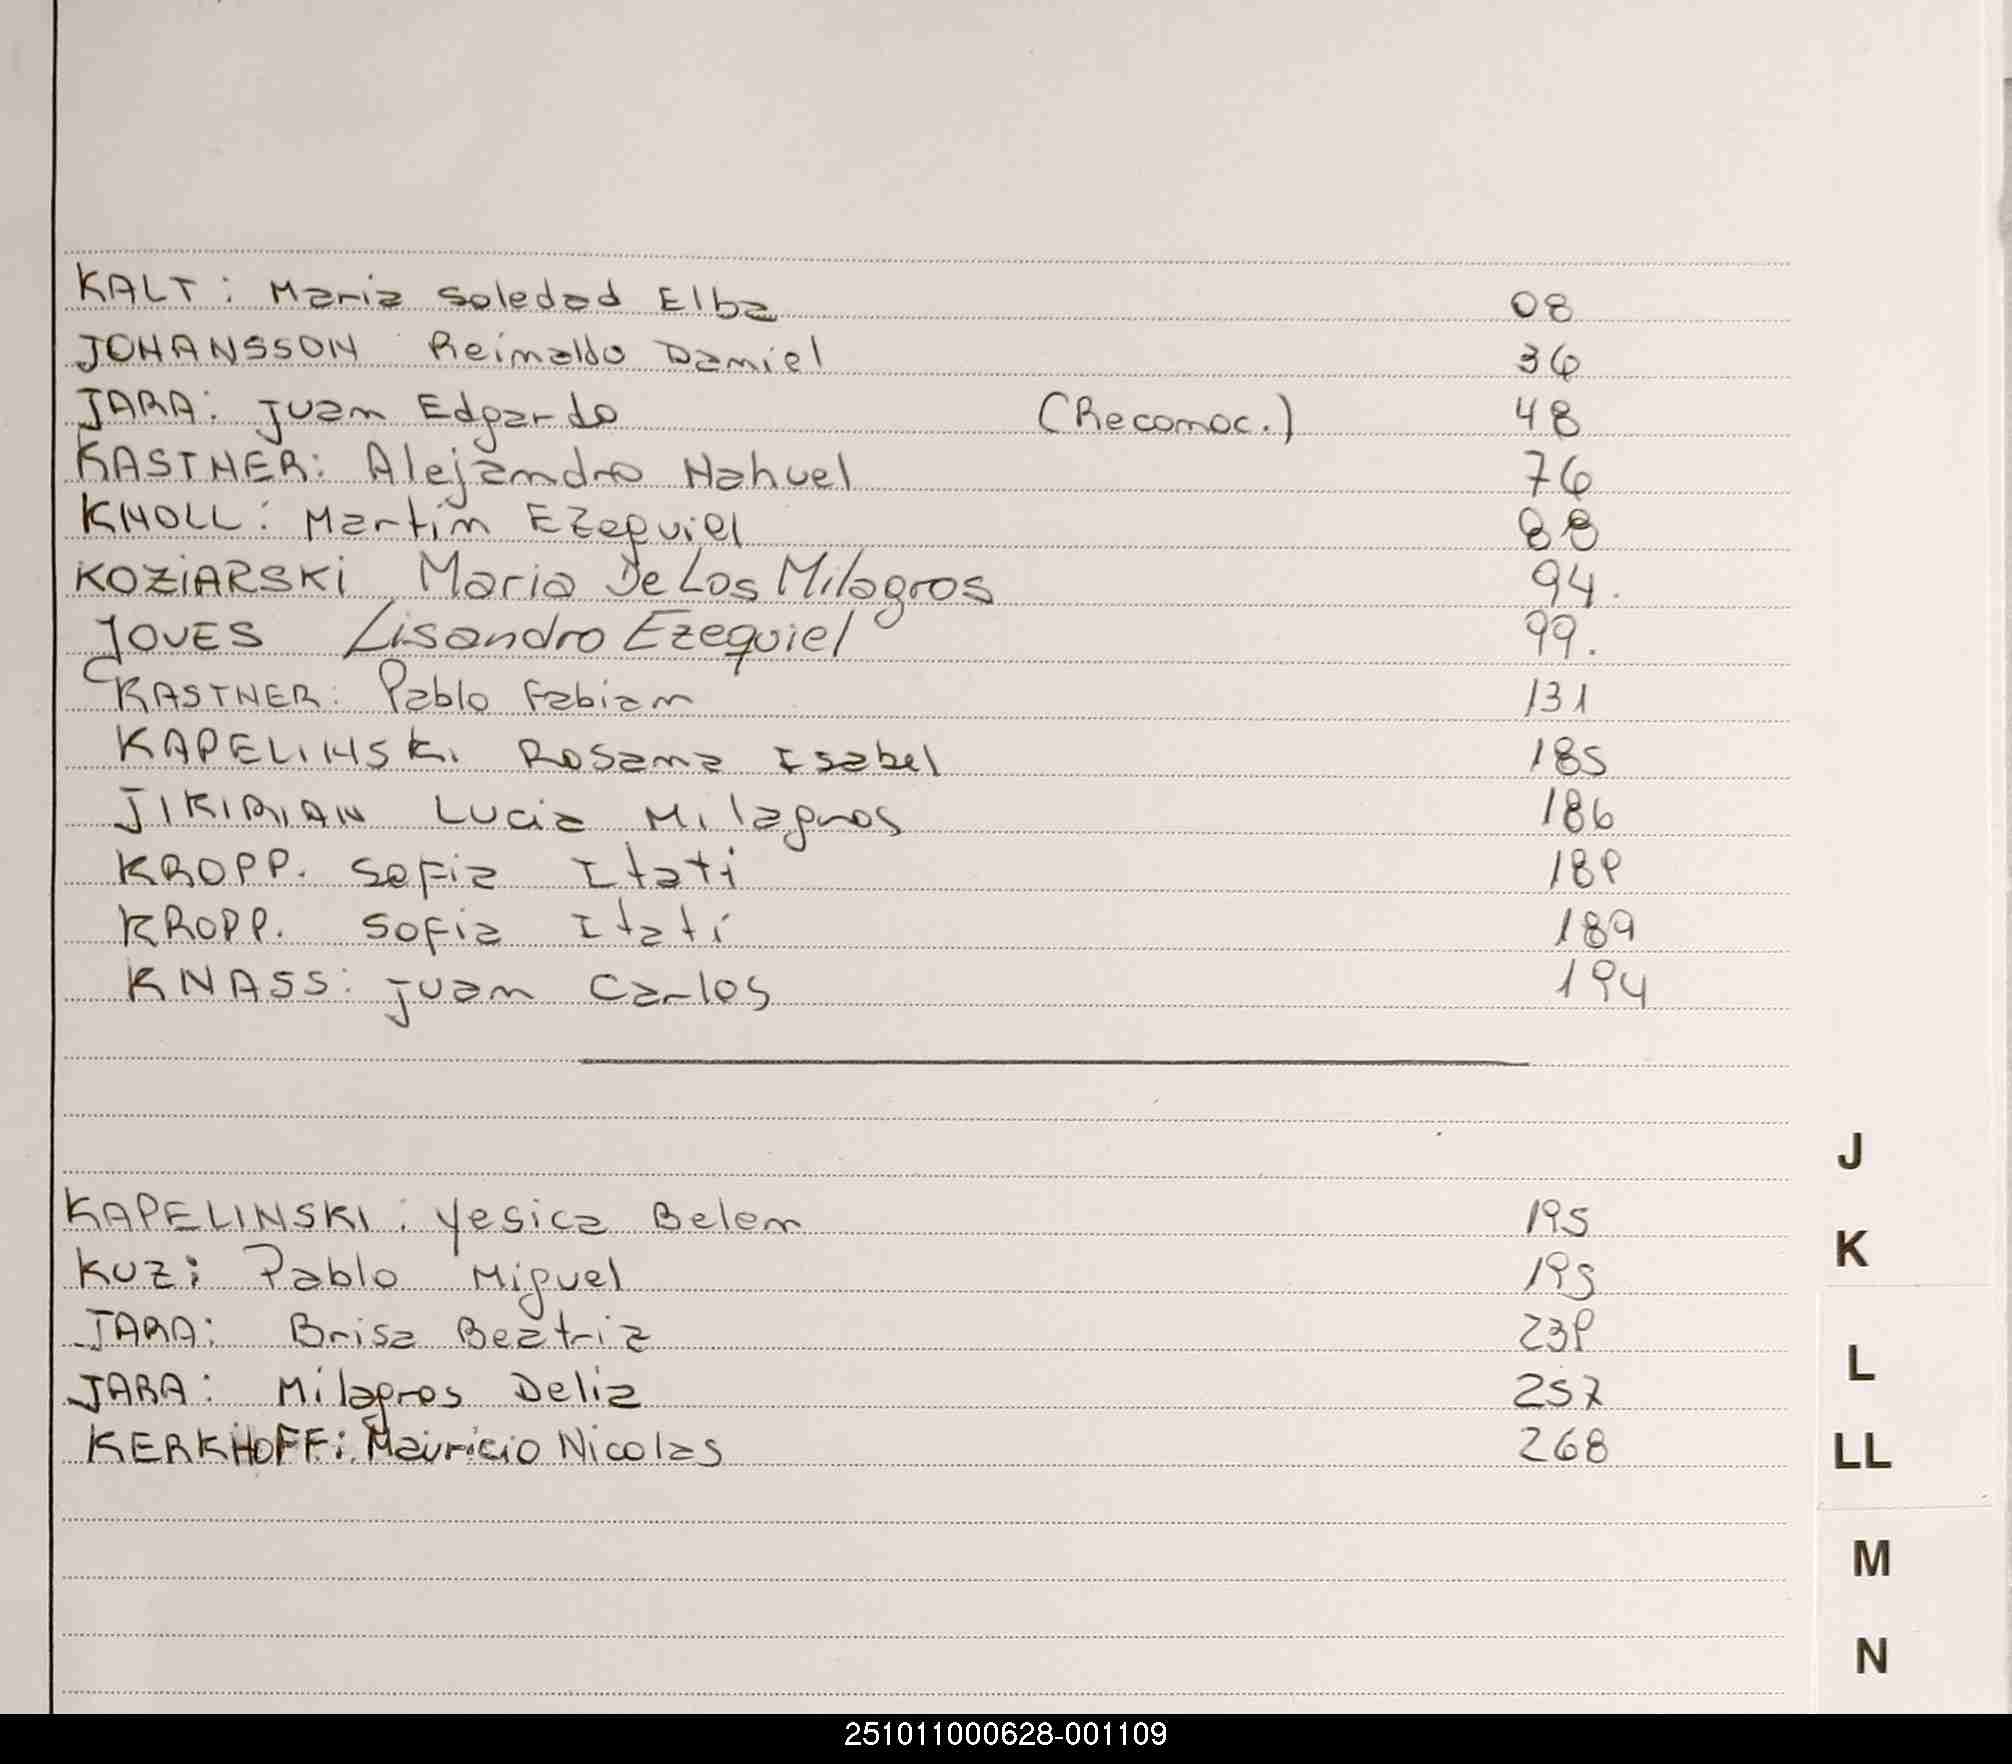 KALT: Maria Soledad Elba 08
JOHANSSON Reinaldo Daniel 36
JARA: Juan Edgardo (Reconoc.) 48
KASTNER: Alejandro Nahuel 76
KNOLL: Martin Ezequiel 88
KOZIARSKI Maria De Los Milagros 94.
JOVES Lisandro Ezequiel 99.
KASTNER: Pablo Fabian 131
KAPELINSKI Rosana Isabel 185
JIKIRIAN Lucia Milagros 186
KROPP. Sofia Itati 189
KROPP. Sofia Itati 189
KNASS: Juan Carlos 194
J
KAPELINSKI: Yesica Belen 195
K
KUZ: Pablo Miguel 195
JARA: Brisa Beatriz 239
L
JARA: Milagros Delia 257
KERKHOFF: Mauricio Nicolas 268
LL
M
N
251011000628-001109